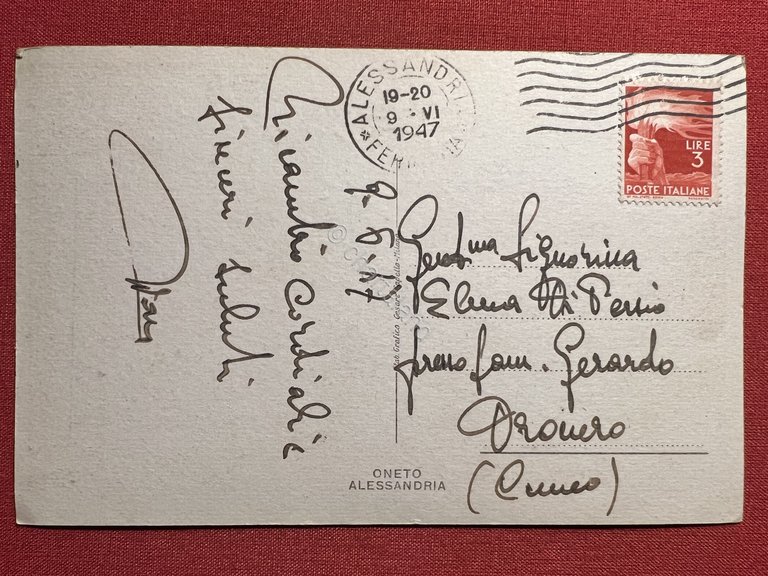 ALESSANDRIA
19-20
9 · VI
1947
FERROVIA
LIRE
3
POSTE ITALIANE
9.6.47
Ricambio cordiali e
sinceri saluti
Gent.ma Signorina
Elena Di Persio
presso fam. Gerardo
Dronero
(Cuneo)
ONETO
ALESSANDRIA